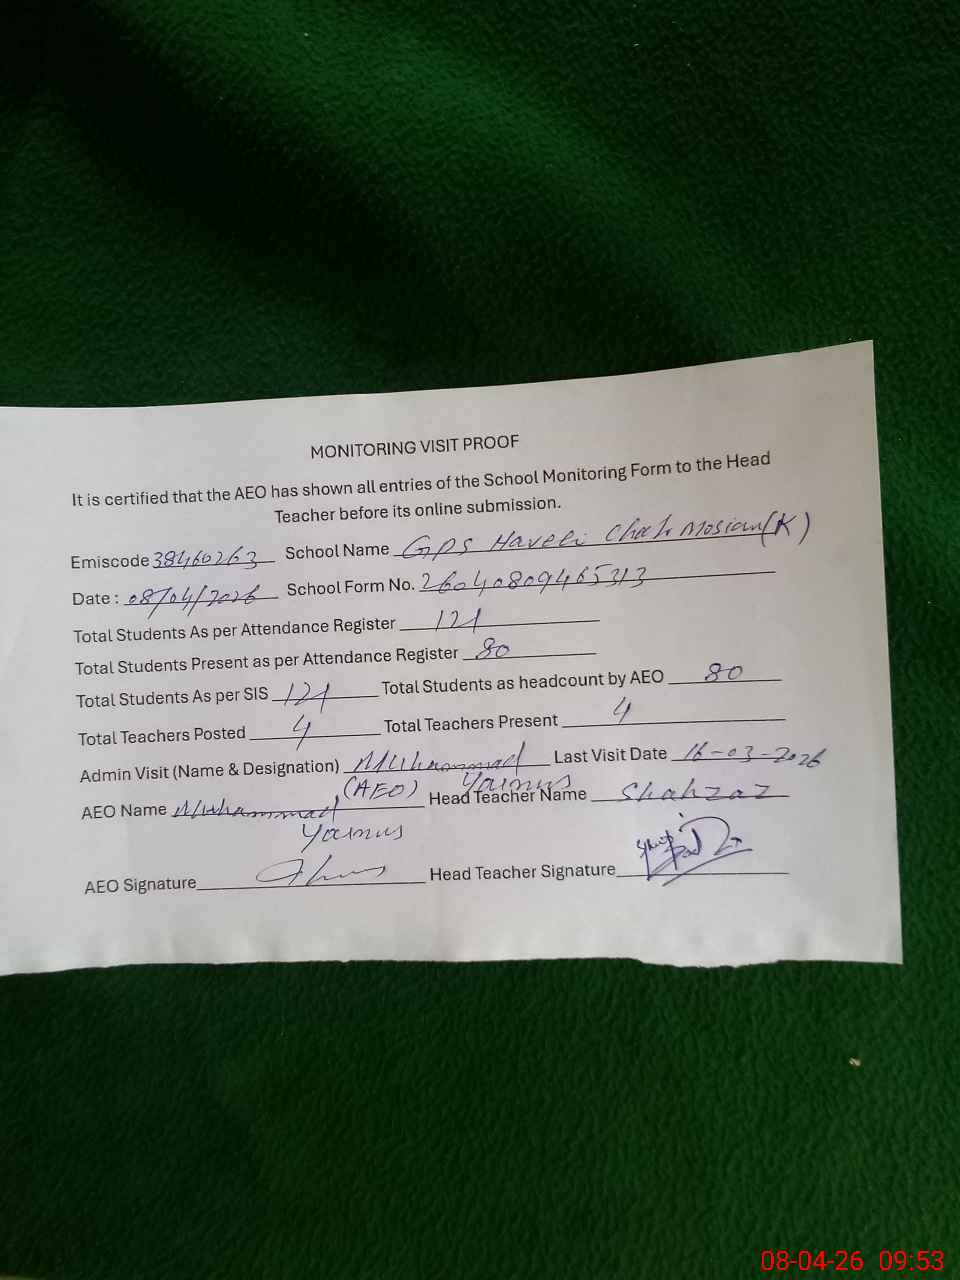 MONITORING VISIT PROOF
It is certified that the AEO has shown all entries of the School Monitoring Form to the Head
Teacher before its online submission.
Emiscode 38460263 School Name GPS Haveli Chah Mosian(K)
Date : 08/04/2026 School Form No. 26040809465313
Total Students As per Attendance Register 121
Total Students Present as per Attendance Register 80
Total Students As per SIS 121 Total Students as headcount by AEO 80
Total Teachers Posted 4 Total Teachers Present 4
Admin Visit (Name & Designation) Muhammad Younus (AEO) Last Visit Date 16-03-2026
AEO Name Muhammad Younus Head Teacher Name Shahzaz
AEO Signature Head Teacher Signature
08-04-26 09:53